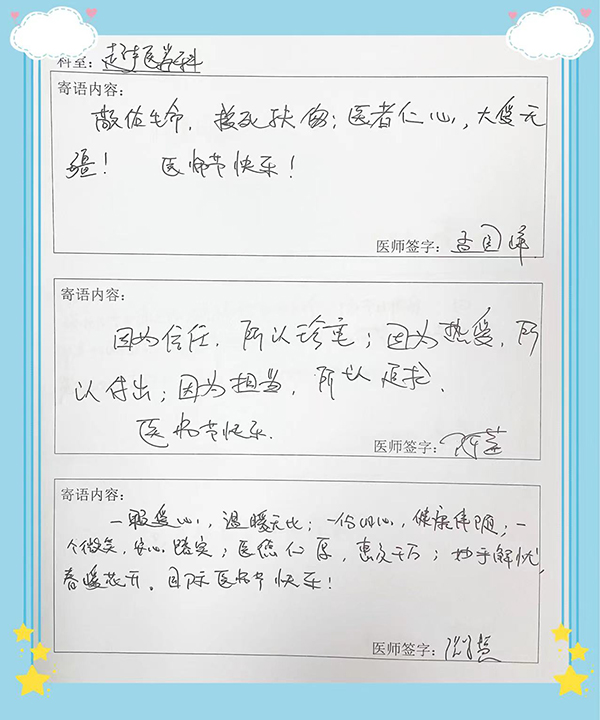 科室：超声医学科
寄语内容：
敬佑生命，救死扶伤；医者仁心，大爱无
疆！ 医师节快乐！
医师签字：孟国峰
寄语内容：
因为信任，所以珍重；因为热爱，所
以付出；因为担当，所以追求．
医师节快乐．
医师签字：
寄语内容：
一颗爱心，温暖无比；一份细心，健康伴随；一
个微笑，安心踏实；医德仁厚，惠及千万；妙手解忧，
春暖花开．国际医师节快乐！
医师签字：